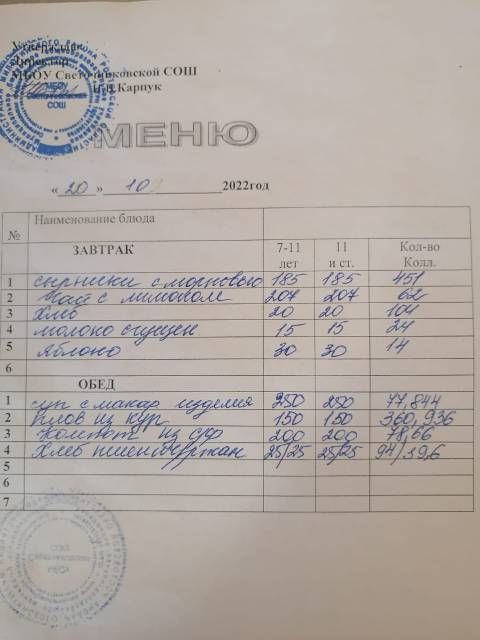 Утверждаю
Директор
МБОУ Светочниковской СОШ
Н.В.Карпук
МЕНЮ
«20» 10 2022год
№ Наименование блюда
ЗАВТРАК 7-11 лет 11 и ст. Кол-во Колл.
1 сырники с морковью 185 185 451
2 Чай с лимоном 207 207 62
3 Хлеб 20 20 104
4 молоко сгущен 15 15 24
5 Яблоко 30 30 14
6
ОБЕД
1 суп с макар изделия 250 250 77,844
2 плов из кур 150 150 360,936
3 Компот из с/ф 200 200 78,66
4 Хлеб пшенич/ржан 25/25 25/25 94/39,6
5
6
7